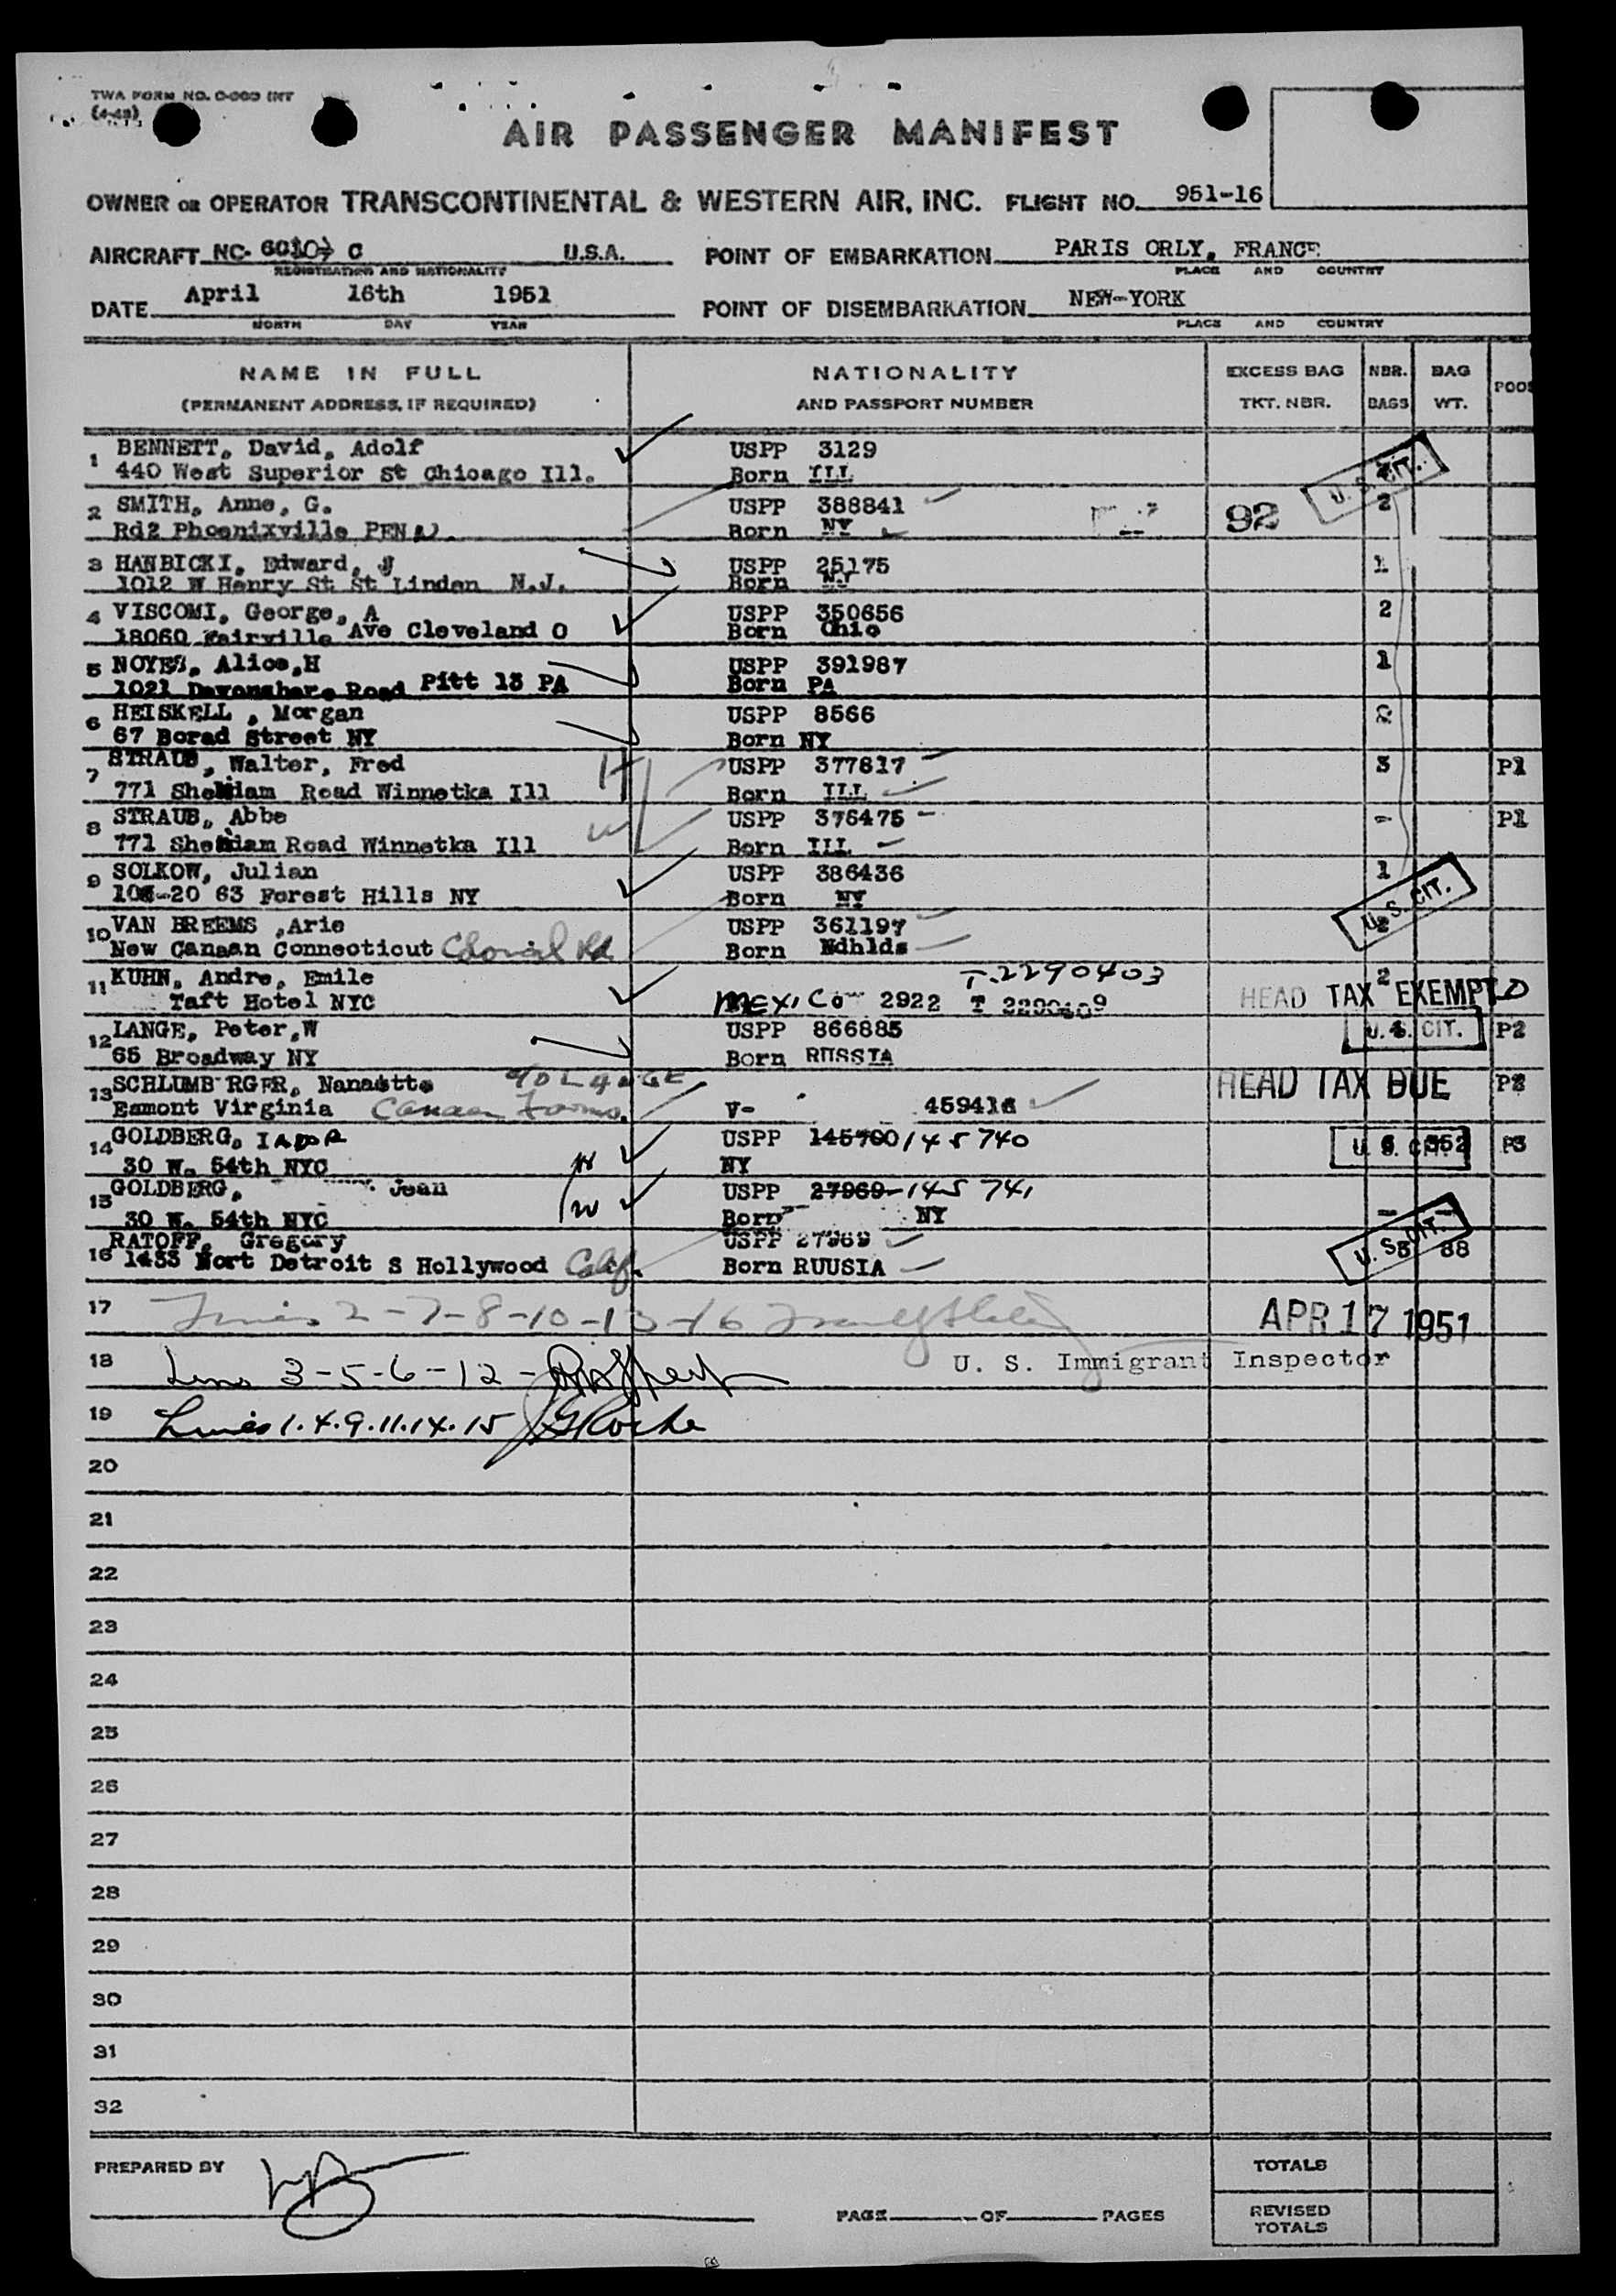 TWA FORM NO.
AIR PASSENGER MANIFEST
OWNER OR OPERATOR TRANSCONTINENTAL & WESTERN AIR, INC. FLIGHT NO. 951-16
AIRCRAFT NC- C U.S.A. POINT OF EMBARKATION PARIS ORLY, FRANCE
REGISTRATION AND NATIONALITY PLACE AND COUNTRY
DATE April 16th 1951 POINT OF DISEMBARKATION NEW-YORK
MONTH DAY YEAR PLACE AND COUNTRY
NAME IN FULL NATIONALITY EXCESS BAG NBR. BAG
(PERMANENT ADDRESS, IF REQUIRED) AND PASSPORT NUMBER TKT. NBR. BAGS WT.
1 BENNETT, David, Adolf USPP 3129
440 West Superior St Chicago Ill. Born ILL U.S. CIT.
2 SMITH, Anne, G. USPP 388841 92 2
Rd2 Phoenixville PEN Born NY
3 HANBICKI, Edward, J USPP 25175 1
1012 W Henry St St Linden N.J. Born NJ
4 VISCOMI, George, A USPP 350656 2
18060 Fairville Ave Cleveland O Born Ohio
5 NOYES, Alice,H USPP 391987 1
1021 Devonshare Road Pitt 13 PA Born PA
6 HEISKELL , Morgan USPP 8566 2
67 Borad Street NY Born NY
7 STRAUB, Walter, Fred H USPP 377817 3 P1
771 Road Winnetka Ill Born ILL
8 STRAUB, Abbe W USPP 376475 - P1
771 Road Winnetka Ill Born ILL
9 SOLKOW, Julian USPP 386436 1
63 Forest Hills NY Born NY
10 VAN BREEMS ,Arie USPP 361197 U.S. CIT.
New Canaan Connecticut Colonial Rd. Born Ndhlds
11 KUHN, Andre, Emile T-2290403 2
Taft Hotel NYC MEXICO 2922 HEAD TAX EXEMPTD
12 LANGE, Peter,W USPP 866885 U.S. CIT. P2
65 Broadway NY Born RUSSIA
13 SCHLUMBERGER, Nanette HEAD TAX DUE
Esmont Virginia Canaan Farms. V- 459416
14 GOLDBERG, USPP 145700 145740 U.S. CIT. P3
30 W. 54th NYC H NY
15 GOLDBERG, Jean USPP 27969- 145741
30 W. 54th NYC W Born NY -
16 RATOFF, Gregory USPP 27969 U.S. CIT. 88
1433 Nort Detroit S Hollywood Calif. Born RUUSIA
17 Lines 2-7-8-10-13-16 APR 17 1951
18 Lines 3-5-6-12- U. S. Immigrant Inspector
19 Lines 1.4.9.11.14.15 JGRoche
20
21
22
23
24
25
26
27
28
29
30
31
32
PREPARED BY TOTALS
PAGE OF PAGES REVISED
TOTALS